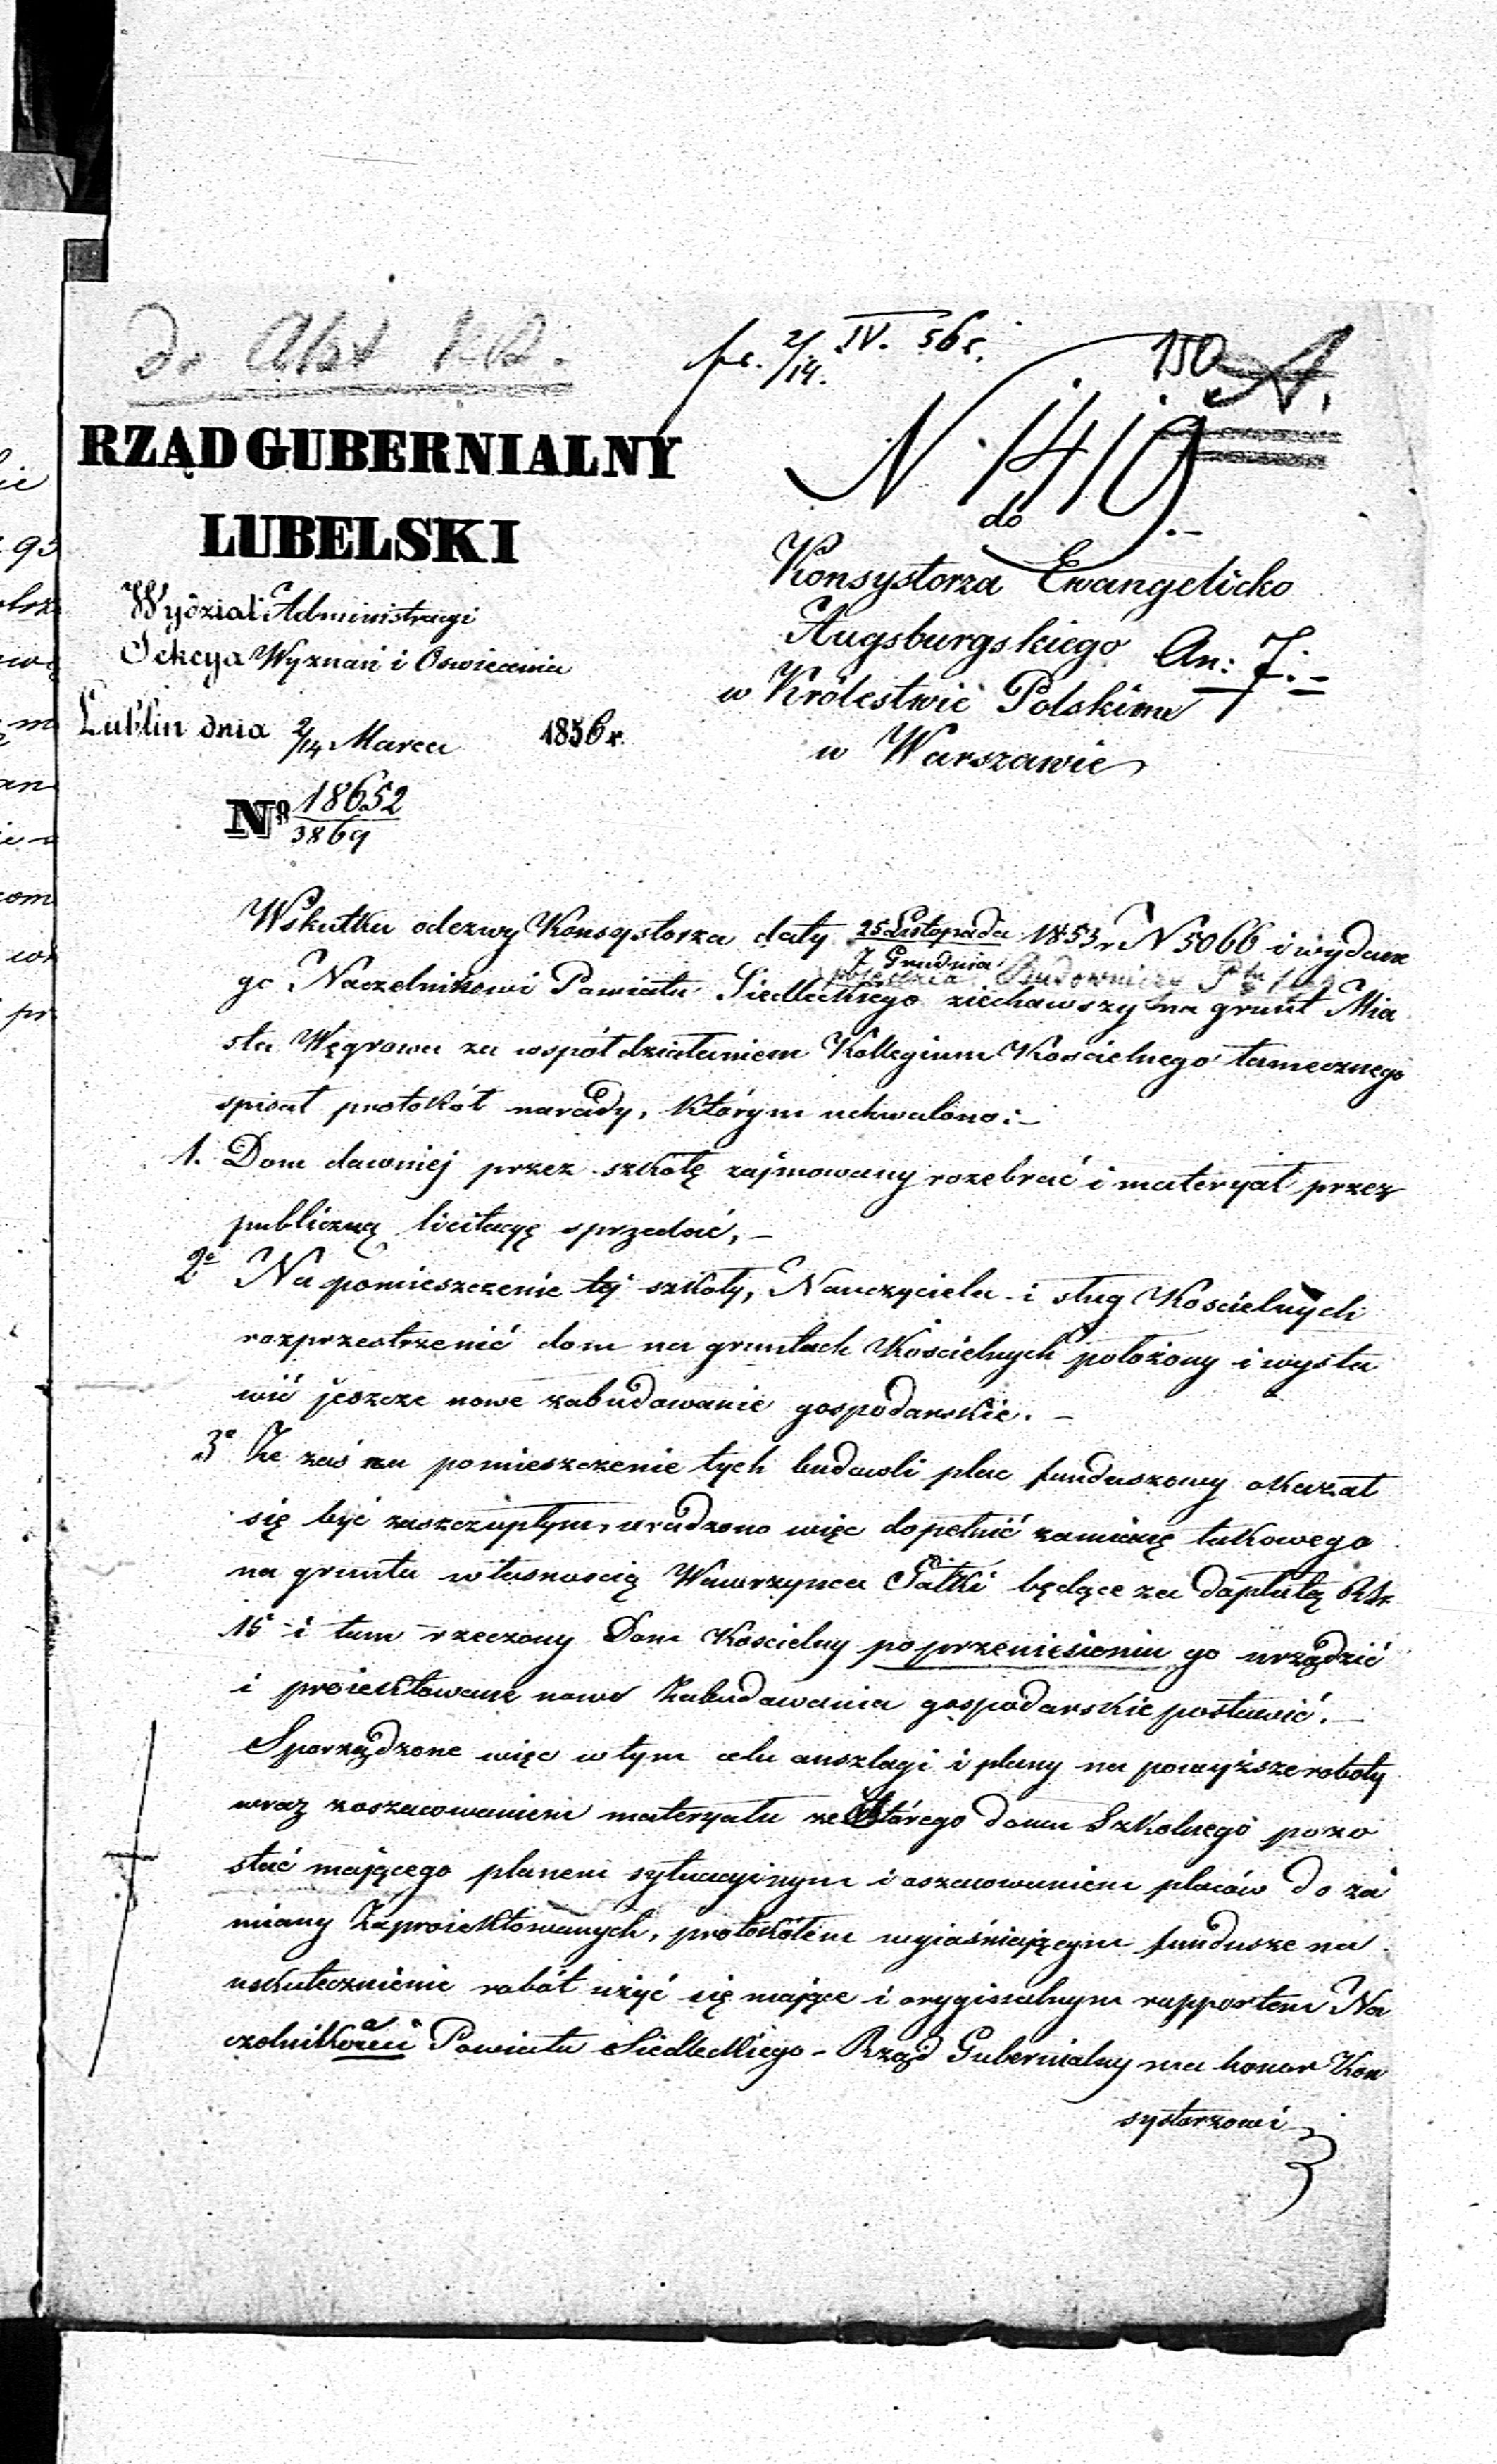 do Akt
pr. 2/14. IV. 56 r.
150
A.
RZĄD GUBERNIALNY
LUBELSKI
N. 1419.-
do
Konsystorza Ewangelicko
Augsburgskiego
w Królestwie Polskim
w Warszawie
An: 7.-
Wydział Administracyi
Sekcya Wyznań i Oswiecenia
Lublin dnia 2/14 Marca 1856 r.
No 18652/3869
Wskutku odezwy Konsystorza daty 25 Listopada/7 Grudnia 1853 r N 5066 i wydane
polecenia Budowniczy Ptu
go Naczelnikowi Powiatu Siedleckiego ziechawszy na grunt Mia
sta Węgrowa za wspótdziałaniem Kollegium Koscielnego tamecznego
spisał protokół narady, którym uchwalono:-
1. Dom dawniej przez szkołę zajmowany rozebrać i materyał przez
publiczną licitacyę sprzedać,-
2e Na pomieszczenie tej szkoły, Nauczyciela i sług Kościelnych
rozprzestrzenić dom na gruntach Kościelnych położony i wysta
wić jeszcze nowe zabudowanie gospodarskie.-
3e Że zaś na pomieszczenie tych budowli plac funduszowy okazał
się być zaszczupłym, uradzono więc dopełnić zamianę takowego
na gruntu własnoscią Wawrzynca Gałki będące za dopłatą Rsr
15 i tam rzeczony Dom Koscielny po przeniesieniu go urządzić
i proiektowane nowe Zabudowania gospodarskie postawić.-
Sporządzone więc w tym celu anszlagi i plany na powyższe roboty
wraz zoszacowaniem materyału ze starego domu Szkolnego pozo
stać mającego planem sytuacyinym i oszacowaniem placów do za
miany Zaproiektowanych, protokółem wyiaśniającym fundusze na
uskutecznienie robót użyć się mające i oryginalnym rapportem Na
czelnika Powiatu Siedleckiego - Rząd Gubernialny ma honor Kon
systorzowi